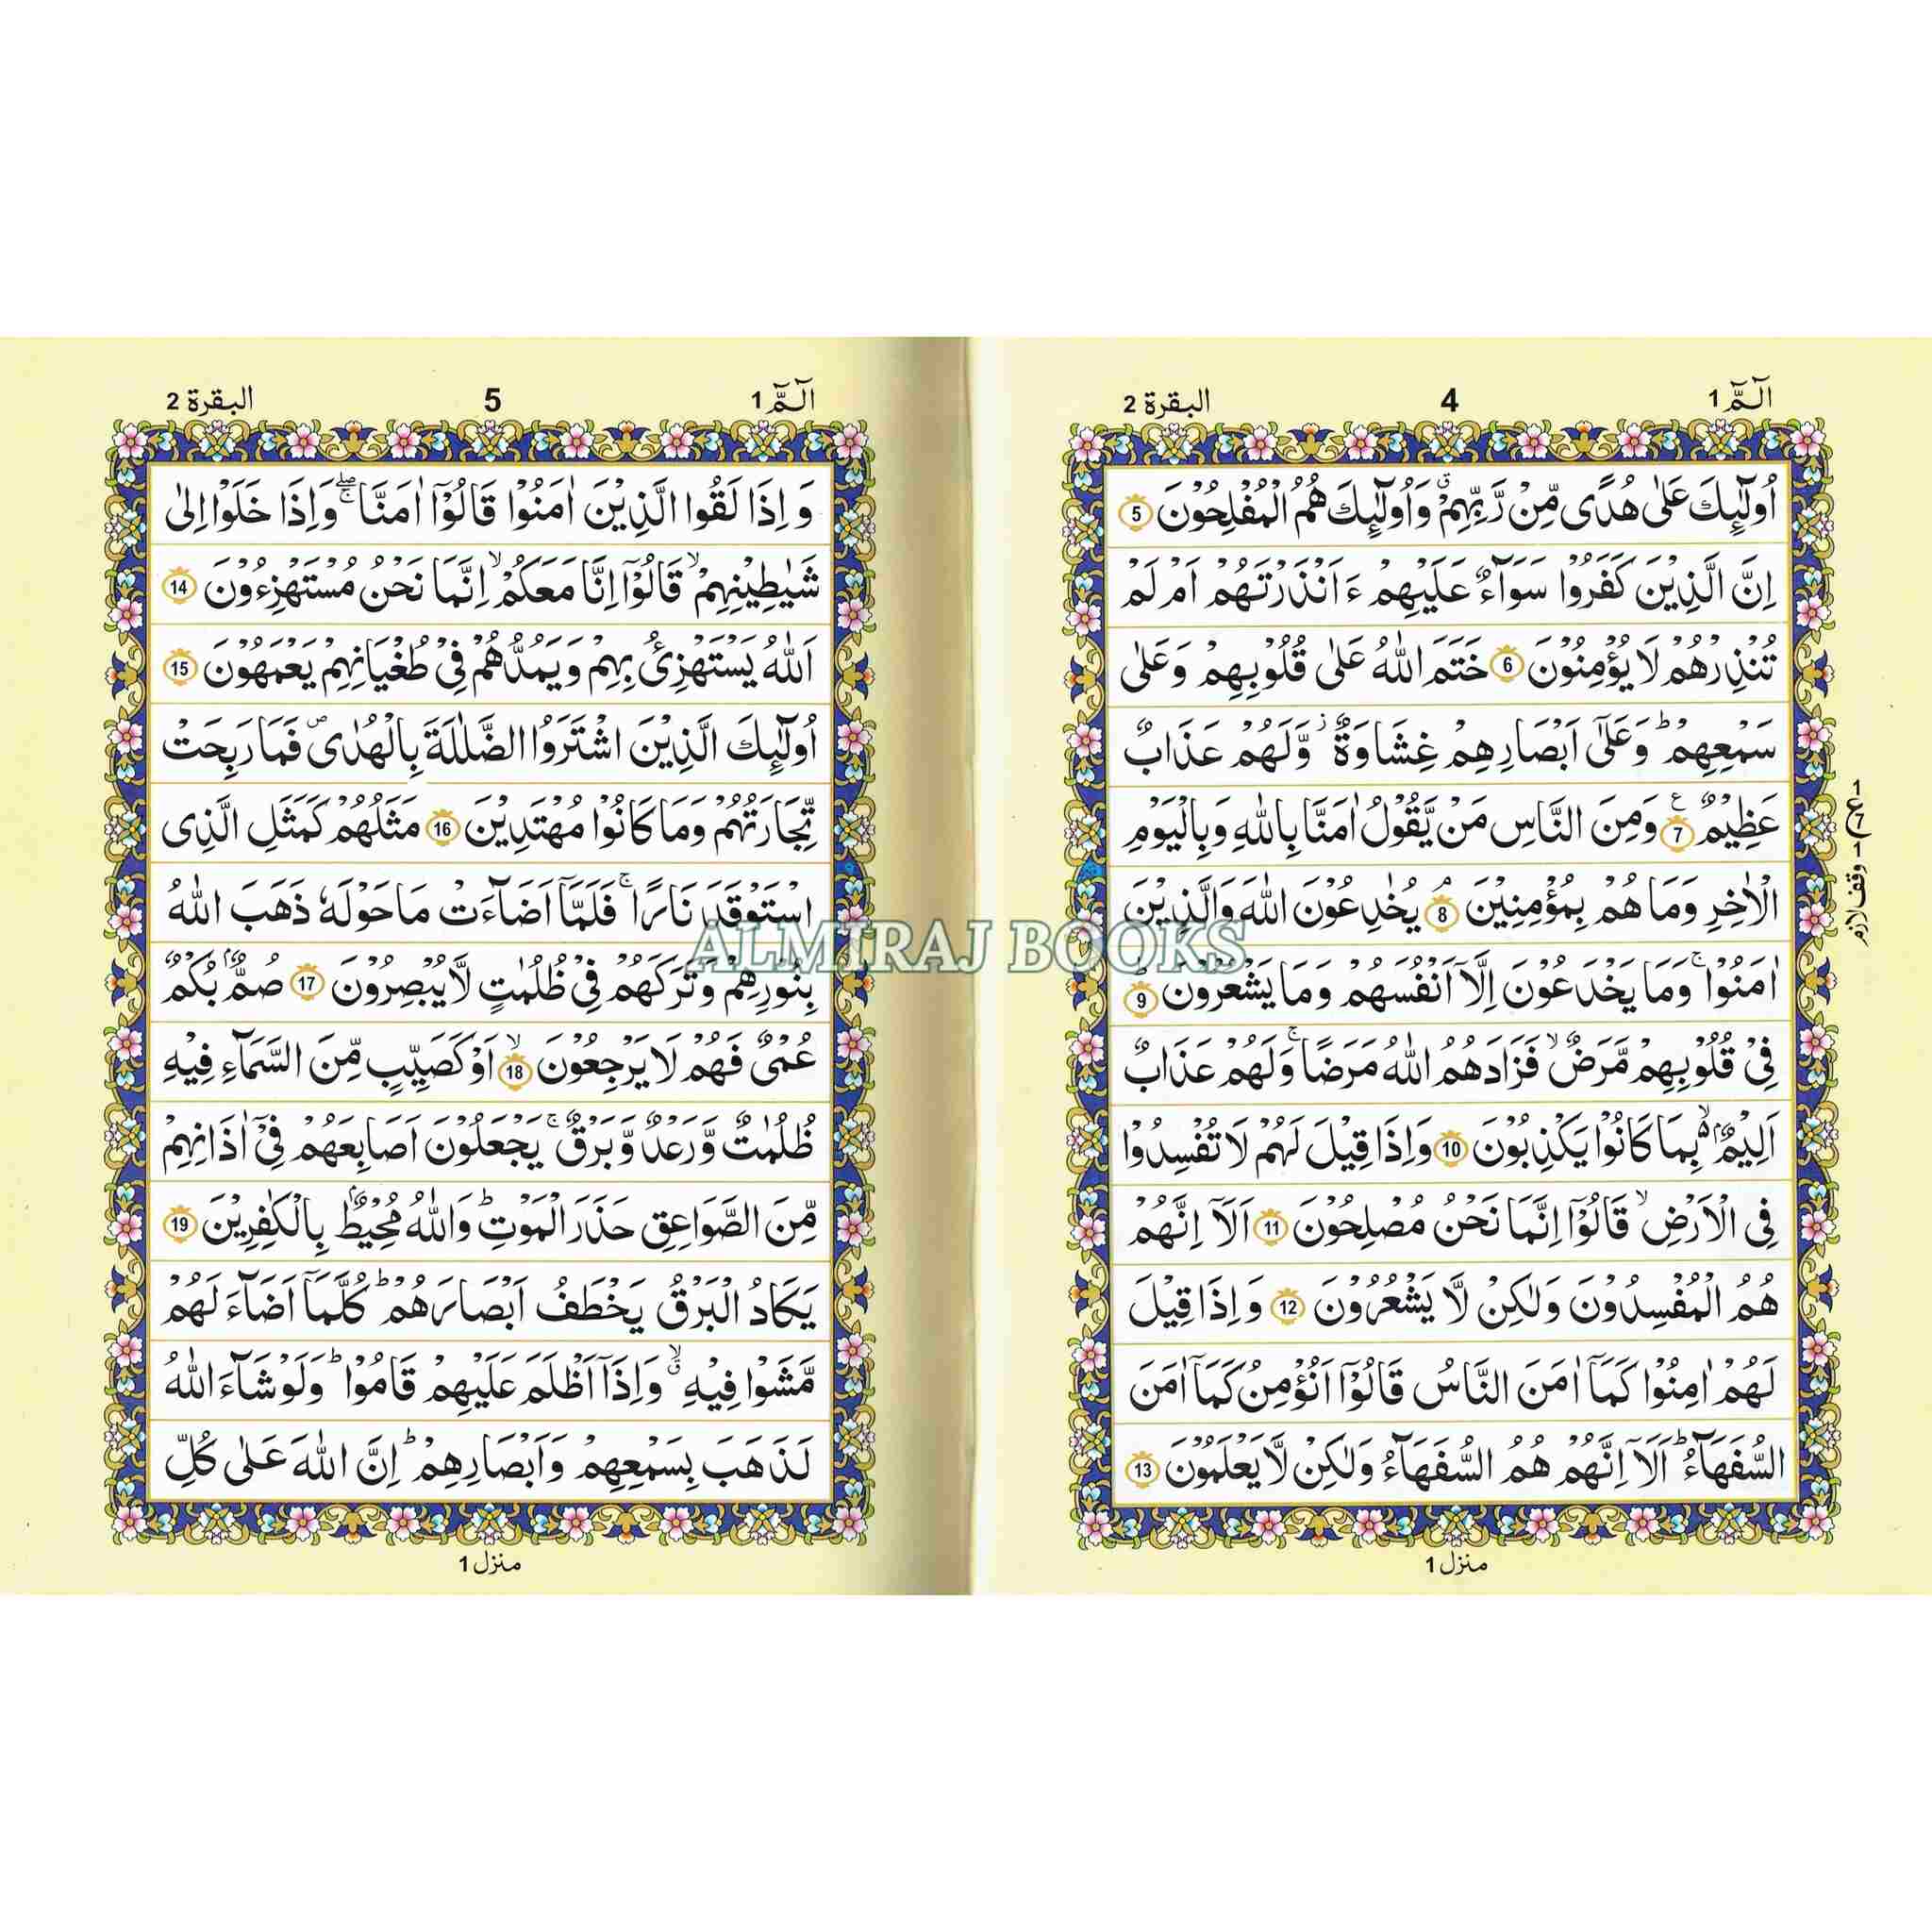 الٓمّٓ 1
4
البقرة 2
اُولٰٓئِكَ عَلٰى هُدًى مِّنْ رَّبِّهِمْ ۗ وَاُولٰٓئِكَ هُمُ الْمُفْلِحُوْنَ 5
اِنَّ الَّذِيْنَ كَفَرُوْا سَوَآءٌ عَلَيْهِمْ ءَاَنْذَرْتَهُمْ اَمْ لَمْ
تُنْذِرْهُمْ لَا يُؤْمِنُوْنَ 6 خَتَمَ اللّٰهُ عَلٰى قُلُوْبِهِمْ وَعَلٰى
سَمْعِهِمْ ؕ وَعَلٰٓى اَبْصَارِهِمْ غِشَاوَةٌ ز وَّلَهُمْ عَذَابٌ
عَظِيْمٌ 7 ع وَمِنَ النَّاسِ مَنْ يَّقُوْلُ اٰمَنَّا بِاللّٰهِ وَبِالْيَوْمِ
الْاٰخِرِ وَمَا هُمْ بِمُؤْمِنِيْنَ 8 ۘ يُخٰدِعُوْنَ اللّٰهَ وَالَّذِيْنَ
اٰمَنُوْا ۚ وَمَا يَخْدَعُوْنَ اِلَّآ اَنْفُسَهُمْ وَمَا يَشْعُرُوْنَ 9 ؕ
فِيْ قُلُوْبِهِمْ مَّرَضٌ ۙ فَزَادَهُمُ اللّٰهُ مَرَضًا ۚ وَلَهُمْ عَذَابٌ
اَلِيْمٌ ۢ ۙ بِمَا كَانُوْا يَكْذِبُوْنَ 10 وَاِذَا قِيْلَ لَهُمْ لَا تُفْسِدُوْا
فِى الْاَرْضِ ۙ قَالُوْٓا اِنَّمَا نَحْنُ مُصْلِحُوْنَ 11 اَلَآ اِنَّهُمْ
هُمُ الْمُفْسِدُوْنَ وَلٰكِنْ لَّا يَشْعُرُوْنَ 12 وَاِذَا قِيْلَ
لَهُمْ اٰمِنُوْا كَمَآ اٰمَنَ النَّاسُ قَالُوْٓا اَنُؤْمِنُ كَمَآ اٰمَنَ
السُّفَهَآءُ ؕ اَلَآ اِنَّهُمْ هُمُ السُّفَهَآءُ وَلٰكِنْ لَّا يَعْلَمُوْنَ 13
منزل 1
وقف لازم
الٓمّٓ 1
5
البقرة 2
وَ اِذَا لَقُوا الَّذِيْنَ اٰمَنُوْا قَالُوْٓا اٰمَنَّا ۖۚ وَاِذَا خَلَوْا اِلٰى
شَيٰطِيْنِهِمْ ۙ قَالُوْٓا اِنَّا مَعَكُمْ ۙ اِنَّمَا نَحْنُ مُسْتَهْزِءُوْنَ 14
اَللّٰهُ يَسْتَهْزِئُ بِهِمْ وَ يَمُدُّهُمْ فِيْ طُغْيَانِهِمْ يَعْمَهُوْنَ 15
اُولٰٓئِكَ الَّذِيْنَ اشْتَرَوُا الضَّلٰلَةَ بِالْهُدٰى ص فَمَا رَبِحَتْ
تِّجَارَتُهُمْ وَمَا كَانُوْا مُهْتَدِيْنَ 16 مَثَلُهُمْ كَمَثَلِ الَّذِى
اسْتَوْقَدَ نَارًا ۚ فَلَمَّآ اَضَآءَتْ مَا حَوْلَهٗ ذَهَبَ اللّٰهُ
بِنُوْرِهِمْ وَتَرَكَهُمْ فِيْ ظُلُمٰتٍ لَّا يُبْصِرُوْنَ 17 صُمٌّۢ بُكْمٌ
عُمْىٌ فَهُمْ لَا يَرْجِعُوْنَ 18 ۙ اَوْ كَصَيِّبٍ مِّنَ السَّمَآءِ فِيْهِ
ظُلُمٰتٌ وَّرَعْدٌ وَّبَرْقٌ ۚ يَجْعَلُوْنَ اَصَابِعَهُمْ فِيْٓ اٰذَانِهِمْ
مِّنَ الصَّوَاعِقِ حَذَرَ الْمَوْتِ ؕ وَاللّٰهُ مُحِيْطٌۢ بِالْكٰفِرِيْنَ 19
يَكَادُ الْبَرْقُ يَخْطَفُ اَبْصَارَهُمْ ؕ كُلَّمَآ اَضَآءَ لَهُمْ
مَّشَوْا فِيْهِ ۙۗ وَاِذَآ اَظْلَمَ عَلَيْهِمْ قَامُوْا ؕ وَلَوْ شَآءَ اللّٰهُ
لَذَهَبَ بِسَمْعِهِمْ وَاَبْصَارِهِمْ ؕ اِنَّ اللّٰهَ عَلٰى كُلِّ
منزل 1
ALMIRAJ BOOKS